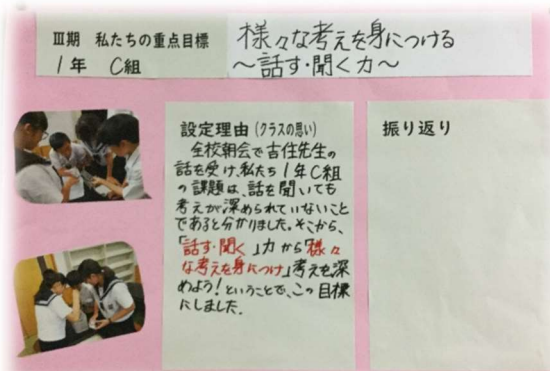 Ⅲ期 私たちの重点目標
1年 C組
様々な考えを身につける
～話す・聞く力～
設定理由(クラスの思い)
全校朝会で吉住先生の
話を受け、私たち1年C組
の課題は、話を聞いても
考えが深められていないこと
であると分かりました。そこから、
「話す・聞く」力から「様々
な考えを身につけ」考えを深
めよう!ということで、この目標
にしました。
振り返り